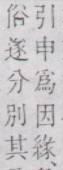 引申爲因緣、
俗遂分別其